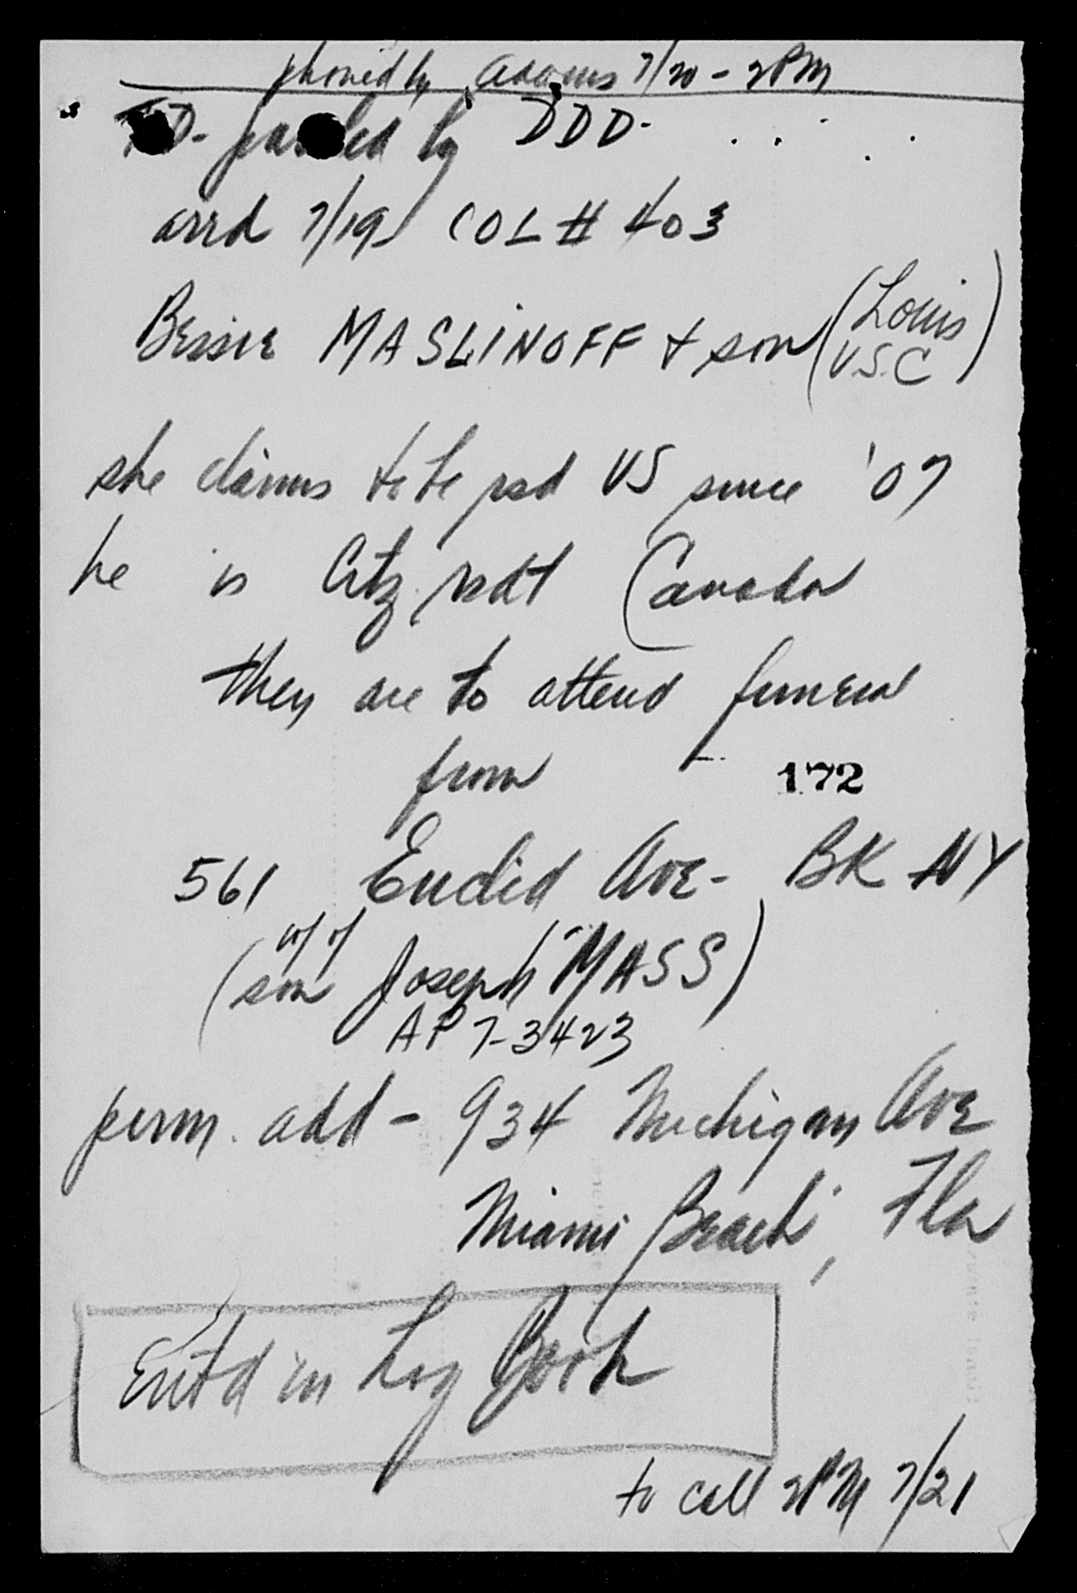 phoned by Adams 7/20 - 2PM
by DDD-
arrd 7/19 COL # 403
Bessie MASLINOFF + son (Louis
USC)
she claims to be rsd US since '07
he is Citz rsdt Canada
they are to attend funeral
from
172
561 Euclid Ave - BK NY
(w/of
son Joseph MASS)
AP 7-3423
perm. add - 934 Michigan Ave
Miami Beach, Fla
Ent'd in Log Book
to call 2PM 7/21